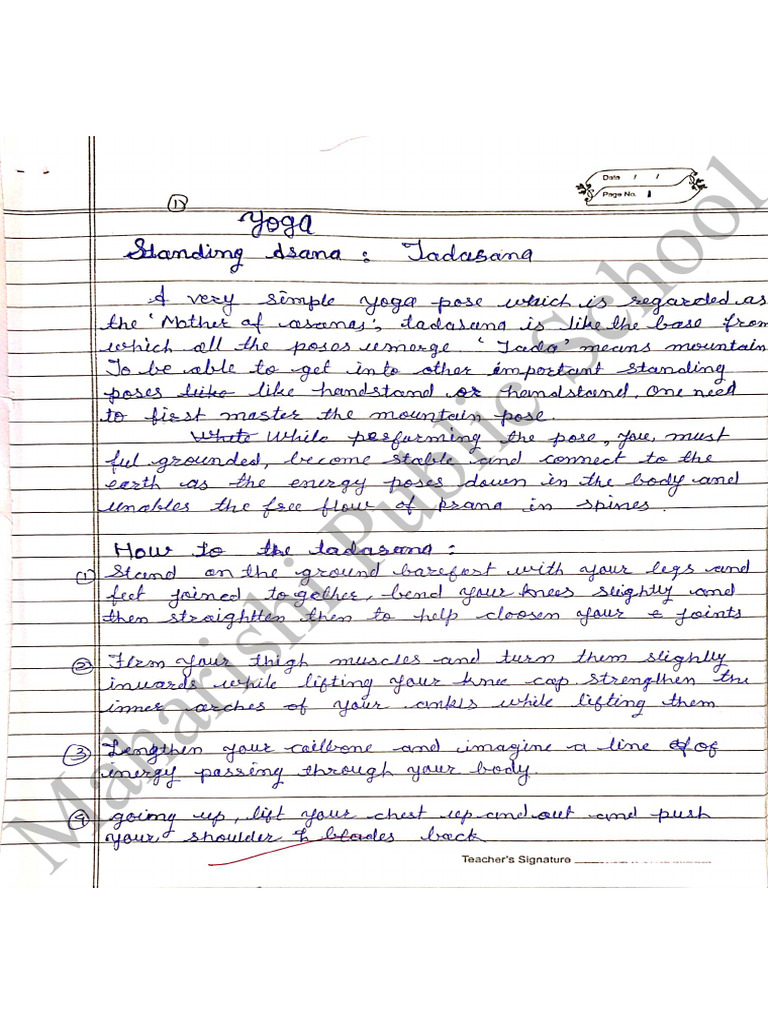 Date / /
Page No. 1
①
Yoga
Standing Asana : Tadasana
A very simple yoga pose which is regarded as
the 'Mother of asanas', tadasana is like the base from
which all the poses umerge 'Tada' means mountain
To be able to get into other important standing
poses like like handstand or handstand, one need
to first master the mountain pose.
While performing the pose, you, must
ful grounded, become stable and connect to the
earth as the energy poses down in the body and
unables the free flow of prana in spines.
How to the tadasana :
① Stand on the ground barefoot with your legs and
feet joined together, bend your knees slightly and
then straightten then to help cloosen your joints
② Firm your thigh muscles and turn them slighly
inwards while lifting your knee cap. strengthen the
inner arches of your ankls while lifting them
③ Lengthen your tailbone and imagine a line of
energy passing through your body.
④ going up, lift your chest up and out and push
your shoulder blades back
Teacher's Signature
Maharishi Public School